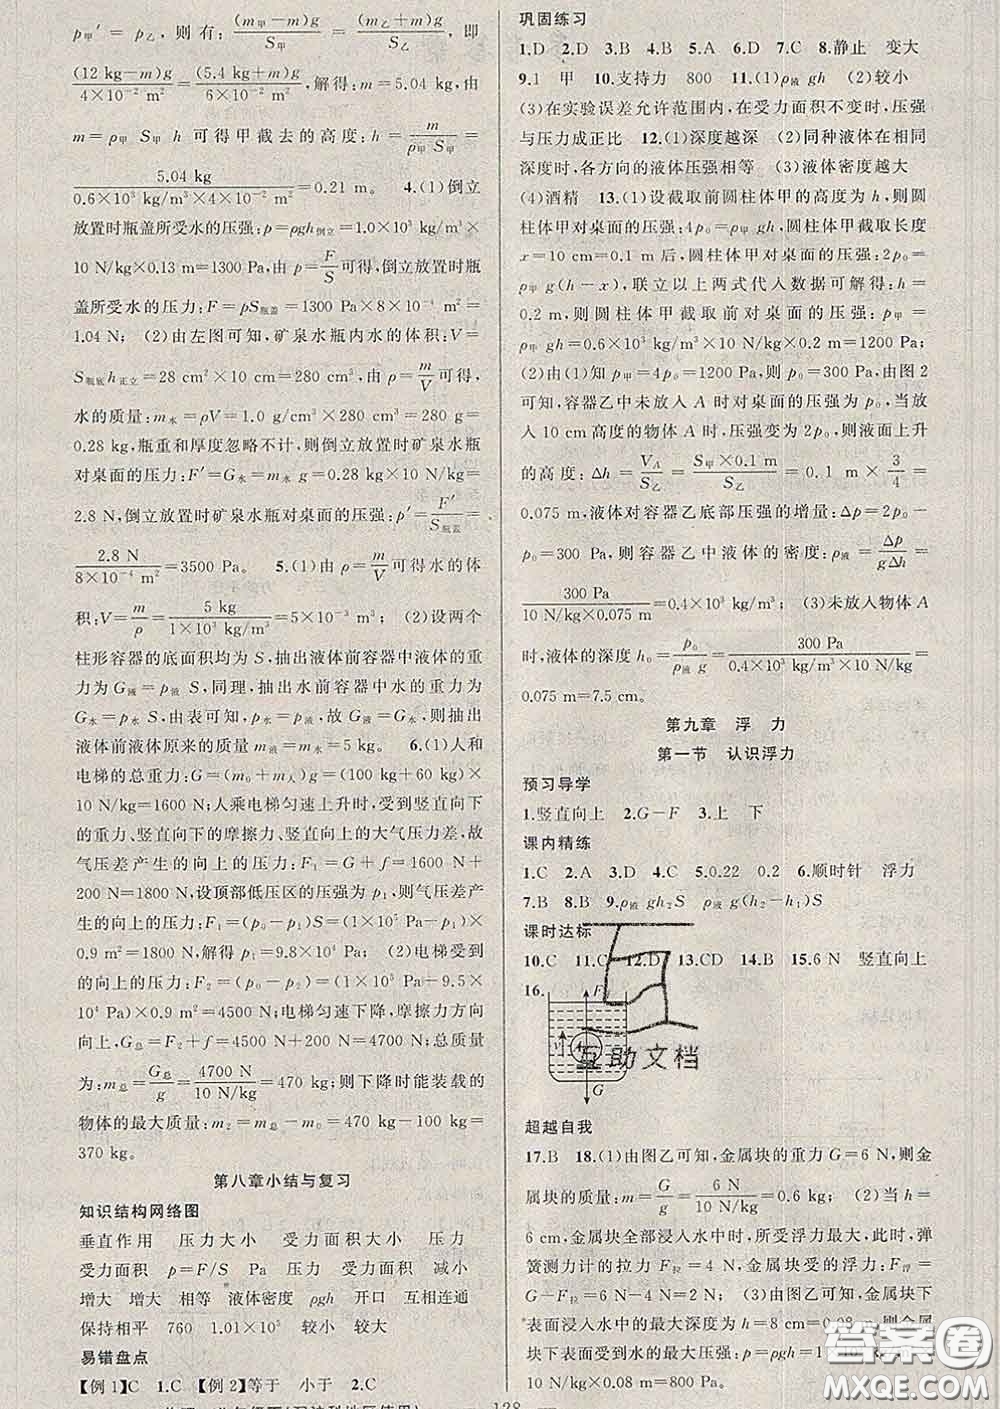 p甲′=p乙，则有：(m甲−m)g/S甲=(m乙+m)g/S乙，即
(12 kg−m)g/4×10⁻² m²=(5.4 kg+m)g/6×10⁻² m²，解得：m=5.04 kg，由
m=ρ甲 S甲 h 可得甲截去的高度：h=m/ρ甲 S甲=
5.04 kg/0.6×10³ kg/m³×4×10⁻² m²=0.21 m。 4.(1)倒立
放置时瓶盖所受水的压强：p=ρgh倒立=1.0×10³ kg/m³×
10 N/kg×0.13 m=1300 Pa，由 p=F/S可得，倒立放置时瓶
盖所受水的压力：F=pS瓶盖=1300 Pa×8×10⁻⁴ m²=
1.04 N； (2)由左图可知，矿泉水瓶内水的体积：V=
S瓶底h正立=28 cm²×10 cm=280 cm³，由 ρ=m/V可得，
水的质量：m水=ρV=1.0 g/cm³×280 cm³=280 g=
0.28 kg，瓶重和厚度忽略不计，则倒立放置时矿泉水瓶
对桌面的压力：F′=G水=m水g=0.28 kg×10 N/kg=
2.8 N，倒立放置时矿泉水瓶对桌面的压强：p′=F′/S瓶盖=
2.8 N/8×10⁻⁴ m²=3500 Pa。 5.(1)由 ρ=m/V可得水的体
积：V=m/ρ=5 kg/1×10³ kg/m³=5×10⁻³ m³； (2)设两个
柱形容器的底面积均为 S，抽出液体前容器中液体的重
力为 G液=p液 S，同理，抽出水前容器中水的重力为
G水=p水 S，由表可知，p水=p液，故 G液=G水，则抽出
液体前液体原来的质量 m液=m水=5 kg。 6.(1)人和
电梯的总重力：G=(m0+m人)g=(100 kg+60 kg)×
10 N/kg=1600 N；人乘电梯匀速上升时，受到竖直向下
的重力、竖直向下的摩擦力、竖直向上的大气压力差，故
气压差产生的向上的压力：F1=G+f=1600 N+
200 N=1800 N，设顶部低压区的压强为 p1，则气压差产
生的向上的压力：F1=(p0−p1)S=(1×10⁵ Pa−p1)×
0.9 m²=1800 N，解得 p1=9.8×10⁴ Pa； (2)电梯受到
的压力：F2=(p0−p2)=(1×10⁵ Pa−
Pa)×0.9 m²=4500 N；电梯匀速下降，摩擦力方向
向上，G总=F2+f=4500 N+200 N=4700 N；总质量
为：m总=G总/g=4700 N/10 N/kg=470 kg；则下降时能装载的
物体的最大质量：m2=m总−m0=470 kg−100 kg=
370 kg。
第八章小结与复习
知识结构网络图
垂直作用 压力大小 受力面积大小 压力
受力面积 p=F/S Pa 压力 受力面积 减小
增大 增大 相等 液体密度 ρgh 开口 互相连通
保持相平 760 1.01×10⁵ 较小 较大
易错盘点
【例1】C 1.C 【例2】等于 小于 2.C
巩固练习
1.D 2.D 3.B 4.B 5.A 6.D 7.C 8.静止 变大
9.1 甲 10.支持力 800 11.(1)ρ液 gh (2)较小
(3)在实验误差允许范围内，在受力面积不变时，压强
与压力成正比 12.(1)深度越深 (2)同种液体在相同
深度时，各方向的液体压强相等 (3)液体密度越大
(4)酒精 13.(1)设截取前圆柱体甲的高度为 h，则圆
柱体甲对桌面的压强：4p0=ρ甲 gh，圆柱体甲截取
x=10 cm=0.1 m 后，圆柱体甲对桌面的压强：2p0=
ρ甲 g(h−x)，联立以上两式代入数据可解得：h=
0.2 m，则圆柱体甲截取前对桌面的压强：p甲=
ρ甲 gh=0.6×10³ kg/m³×10 N/kg×0.2 m=1200 Pa；
(2)由(1)知 p甲=4p0=1200 Pa，则 p0=300 Pa，由图 2
可知，容器乙中未放入 A 时对桌面的压强为 p0，当放
入 10 cm 高度的物体 A 时，压强变为 2p0，则液面上升
的高度：Δh=VA/S乙=S甲×0.1 m/S乙=0.1 m×3/4=
0.075 m，液体对容器乙底部压强的增量：Δp=2p0−
p0=300 Pa，则容器乙中液体的密度：ρ液=Δp/gΔh=
300 Pa/10 N/kg×0.075 m=0.4×10³ kg/m³； (3)未放入物体 A
时，液体的深度 h0=p0/ρ液 g=300 Pa/0.4×10³ kg/m³×10 N/kg=
0.075 m=7.5 cm。
第九章 浮 力
第一节 认识浮力
预习导学
1.竖直向上 2.G−F 3.上 下
课内精练
1.C 2.A 3.D 4.C 5.0.22 0.2 6.顺时针 浮力
7.B 8.B 9.ρ液 gh2S ρ液 g(h2−h1)S
课时达标
10.C 11.C 12.D 13.CD 14.B 15.6 N 竖直向上
16.
G
互助文档
超越自我
17.B 18.(1)由图乙可知，金属块的重力 G=6 N，则金
属块的质量：m=G/g=6 N/10 N/kg=0.6 kg； (2)当 h=
6 cm，金属块全部浸入水中时，所受浮力不变，则弹
簧测力计的拉力 F拉=4 N，金属块受的浮力：F浮=
G−F拉=6 N−4 N=2 N； (3)由图乙可知，金属块下
表面浸入水中的最大深度为 h=8 cm=0.08 m，则金属
块下表面受到水的最大压强：
N/kg×0.08 m=800 Pa。
128
答案圈
MXQE.COM